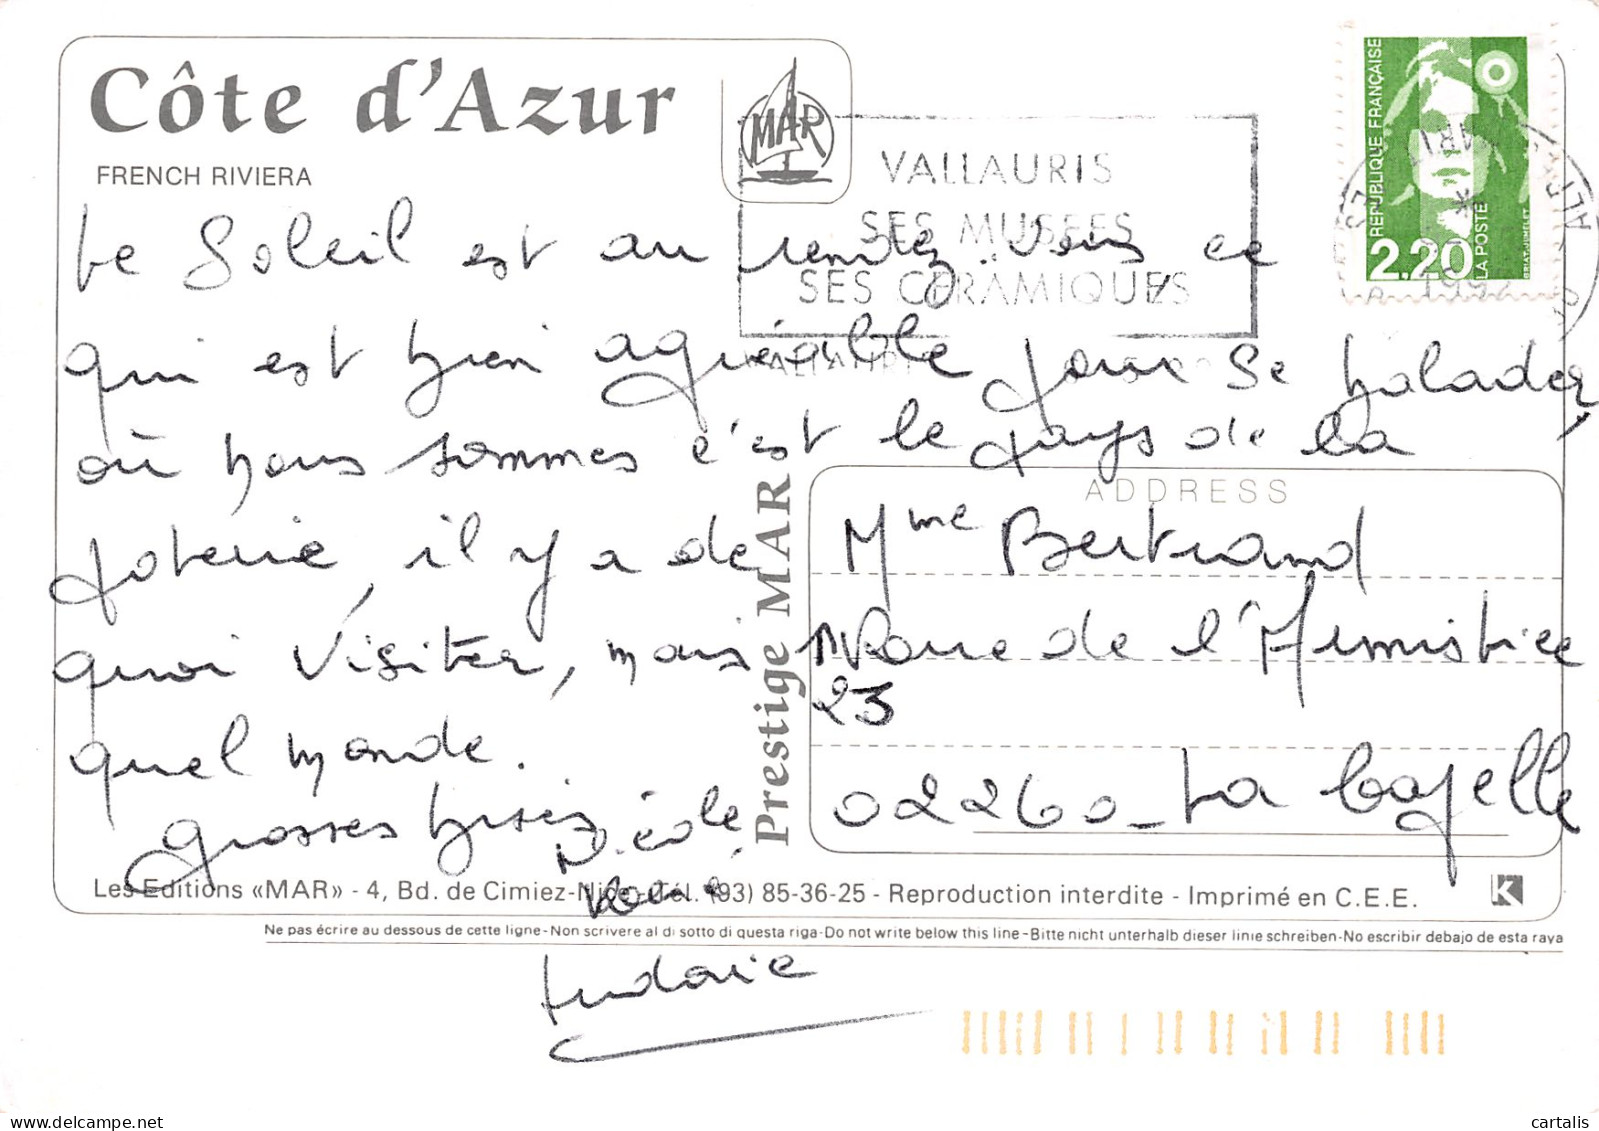 Côte d'Azur
FRENCH RIVIERA
MAR
VALLAURIS
SES MUSEES
SES CERAMIQUES
REPUBLIQUE FRANÇAISE
2.20
LA POSTE
Le Soleil est au rendez-vous, ce
qui est bien agréable pour se balader,
où nous sommes c'est le pays de la
poterie, il y a de
quoi visiter, mais
quel monde.
grosses bises
Nicole
Prestige MAR
ADDRESS
Mme Bertrand
Rue de l'Armistice
23
02260 - La Capelle
Les Editions «MAR» - 4, Bd. de Cimiez-Nice-Tél. (93) 85-36-25 - Reproduction interdite - Imprimé en C.E.E.
K
Ne pas écrire au dessous de cette ligne-Non scrivere al di sotto di questa riga-Do not write below this line-Bitte nicht unterhalb dieser linie schreiben-No escribir debajo de esta raya
cartalis